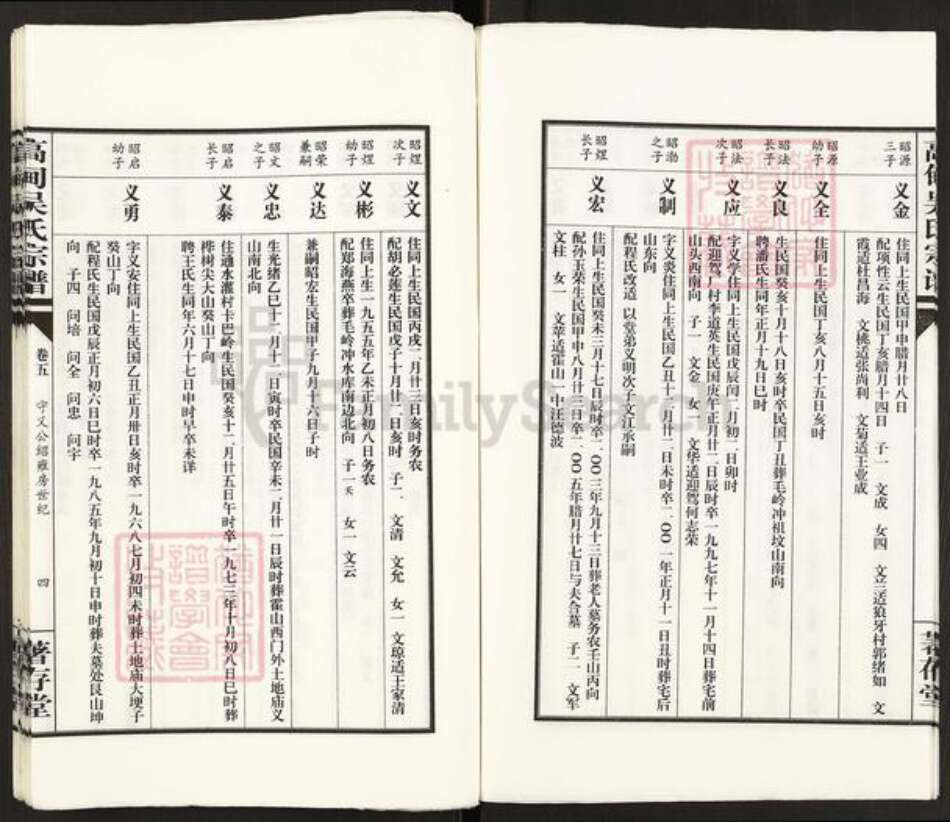 高甸吴氏宗谱
昭源三子
义金
住同上生民国甲申腊月廿八日
配项性云生民国丁亥腊月十四日 子一 文成 女四 文兰适狼牙村郭绪如 文
霞适杜昌海 文桃适张尚利 文菊适王业成
昭源幼子
义全
住同上生民国丁亥八月十五日亥时
昭法长子
义良
生民国癸亥十月十八日亥时卒民国丁丑葬毛岭冲祖坟山南向
聘潘氏生同年正月十九日巳时
昭法次子
义应
字义学住同上生民国戊辰闰二月初二日卯时
配迎驾厂村李道英生民国庚午正月廿二日辰时卒一九九七年十一月十四日葬宅前
山头西南向 子一 文金 女一 文华适迎驾何志荣
昭渤之子
义制
字义炎住同上生民国乙丑十二月廿二日未时卒二〇〇一年正月十一日丑时葬宅后
山东向
配程氏改适 以堂弟义明次子文江承嗣
昭煋长子
义宏
住同上生民国癸未三月十七日辰时卒二〇〇三年九月十三日葬老人墓务农壬山丙向
配孙玉荣生民国甲申八月廿三日卒二〇〇五年腊月廿七日与夫合墓 子二 文军
文柱 女一 文苹适霍山一中汪德波
昭煋次子
义文
住同上生民国丙戌二月廿三日亥时务农
配胡必莲生民国戊子十月廿二日亥时 子二 文清 文允 女一 文琼适王家清
昭煋幼子
义彬
住同上生一九五五年乙未正月初八日务农
配郑海燕卒葬毛岭冲水库南边北向 子一 天 女一 文云
昭荣兼嗣
义达
兼嗣昭宏生民国甲子九月十六日子时
昭文之子
义忠
生光绪乙巳十二月十二日寅时卒民国辛未二月廿一日辰时葬霍山西门外土地庙义
山南北向
昭启长子
义泰
住通水灌村卡巴岭生民国癸亥十二月廿五日午时卒一九七三年十月初八日巳时葬
桦树尖大山癸山丁向
聘王氏生同年六月十七日申时早卒未详
昭启幼子
义勇
字义安住同上生民国乙丑正月卅日亥时卒一九六八七月初四未时葬土地庙大埂子
癸山丁向
配程氏生民国戊辰正月初六日巳时卒一九八五年九月初十日申时葬夫墓处艮山坤
向 子四 问培 问全 问忠 问宇
高甸吴氏宗谱
卷五
守义公绍雍房世纪
四
著存堂
著存堂
FamilySearch